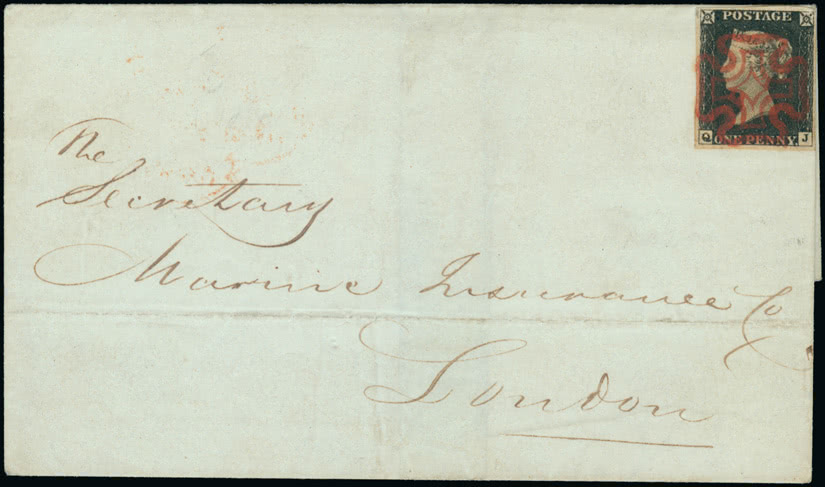 POSTAGE
Q ONE PENNY J
The
Secretary
Marine Insurance Co
London